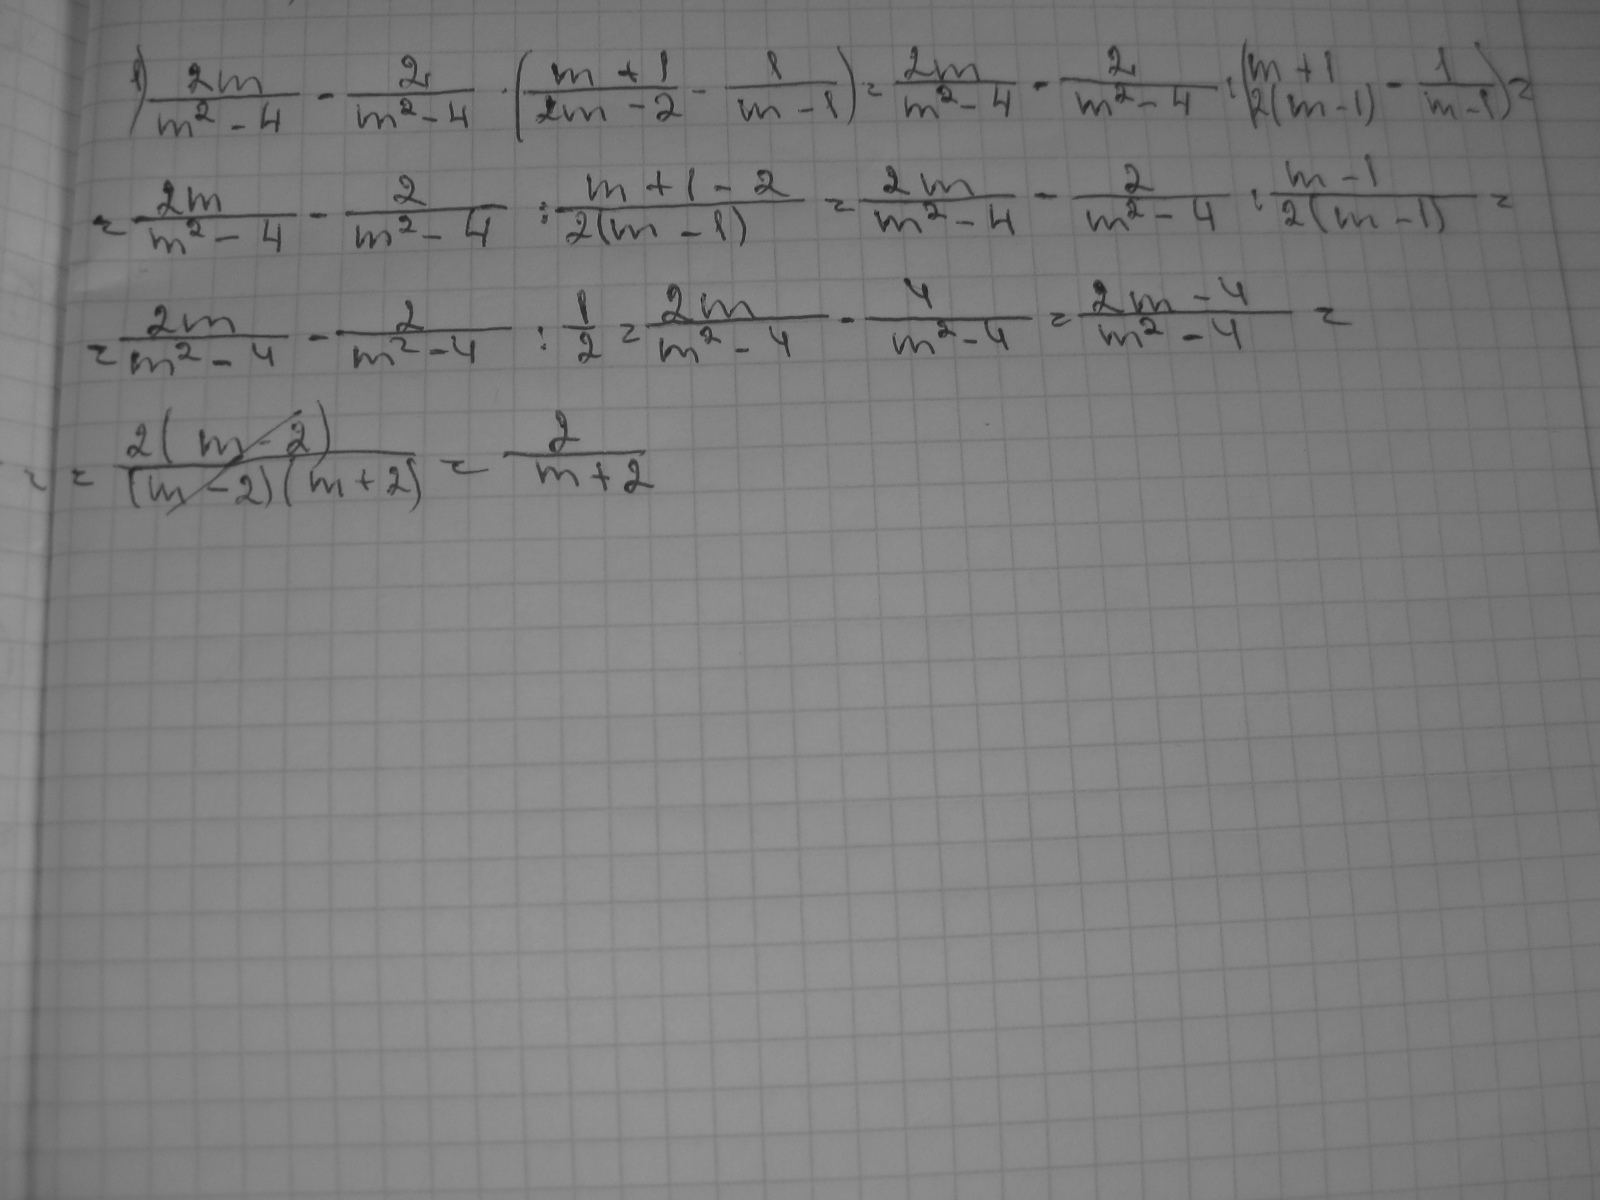 1) 2m/(m² - 4) - 2/(m² - 4) · ((m + 1)/(2m - 2) - 1/(m - 1)) = 2m/(m² - 4) - 2/(m² - 4) : ((m + 1)/(2(m - 1)) - 1/(m - 1)) =
= 2m/(m² - 4) - 2/(m² - 4) : (m + 1 - 2)/(2(m - 1)) = 2m/(m² - 4) - 2/(m² - 4) : (m - 1)/(2(m - 1)) =
= 2m/(m² - 4) - 2/(m² - 4) : 1/2 = 2m/(m² - 4) - 4/(m² - 4) = (2m - 4)/(m² - 4) =
= = 2(m - 2)/((m - 2)(m + 2)) = 2/(m + 2)